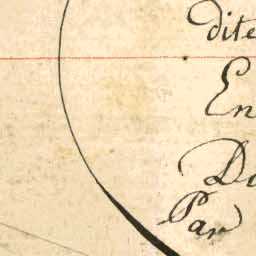 dite
En
De
Par